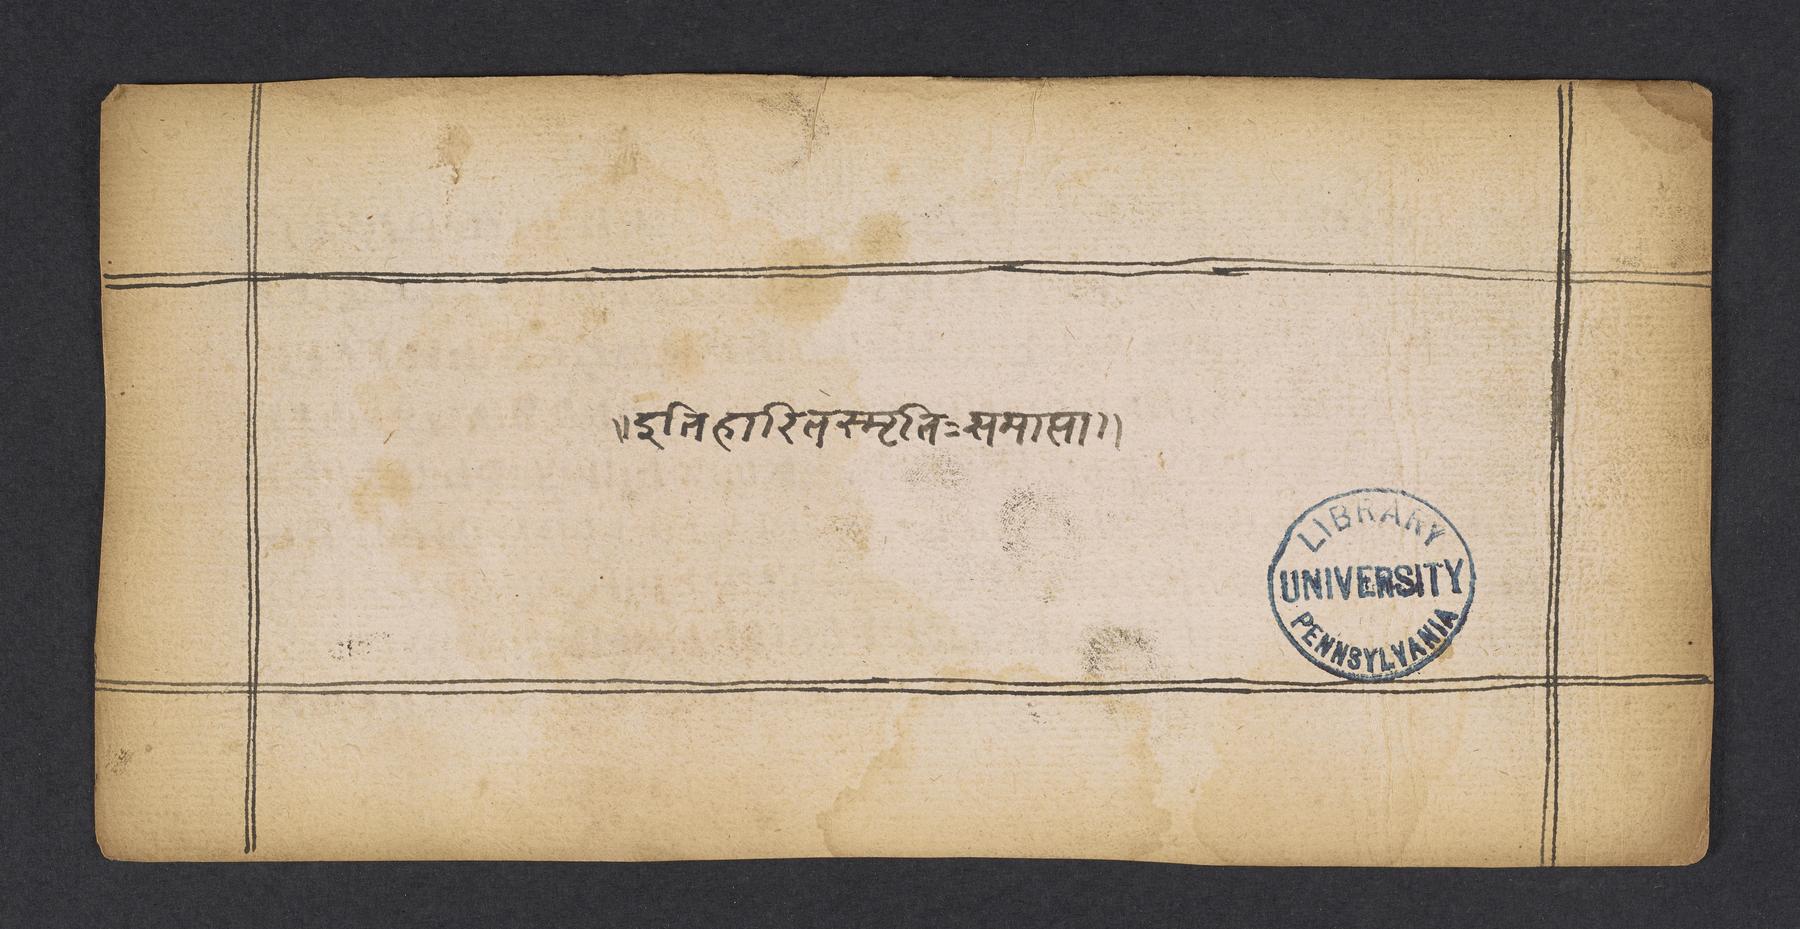 ॥इतिहारितस्मृतिःसमाप्ता॥
LIBRARY
UNIVERSITY
PENNSYLVANIA